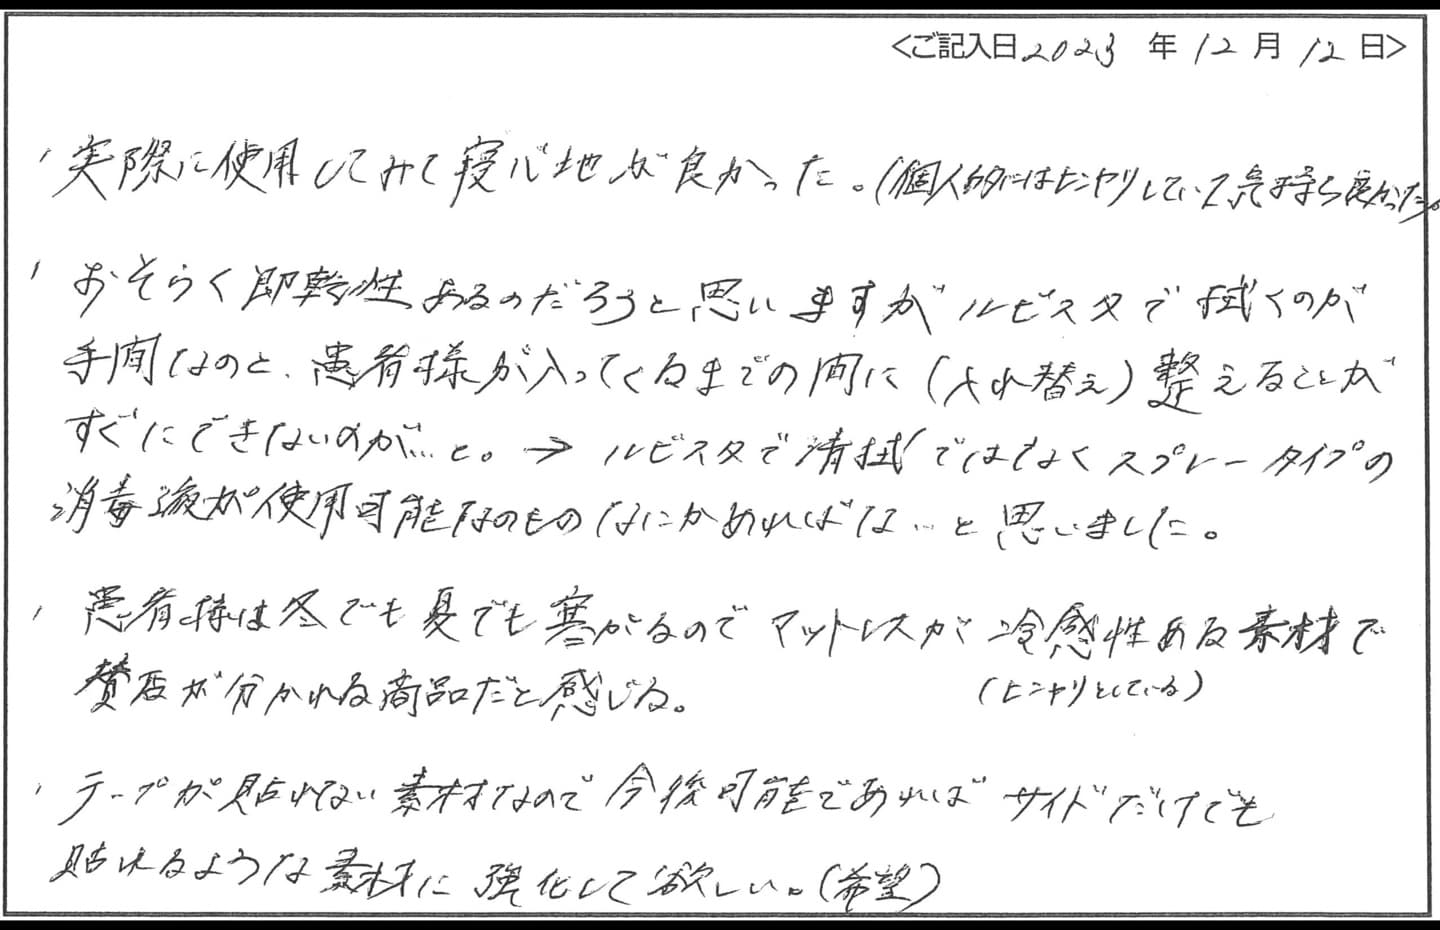 <ご記入日 2023 年 12 月 12 日>
・実際に使用してみて寝心地が良かった。(個人的にはヒンヤリしていて気持ち良かった。
・おそらく即乾性あるのだろうと思いますがルビスタで拭くのが
手間なのと、患者様が入ってくるまでの間に(入れ替え)整えることが
すぐにできないのが…と。→ルビスタで清拭ではなくスプレータイプの
消毒液が使用可能なものなにかあればな…と思いました。
・患者様は冬でも夏でも寒がるのでマットレスが冷感性ある素材で
賛否が分かれる商品だと感じる。(ヒンヤリとしている)
・テープが貼れない素材なので今後可能であればサイドだけでも
貼れるような素材に強化して欲しい。(希望)